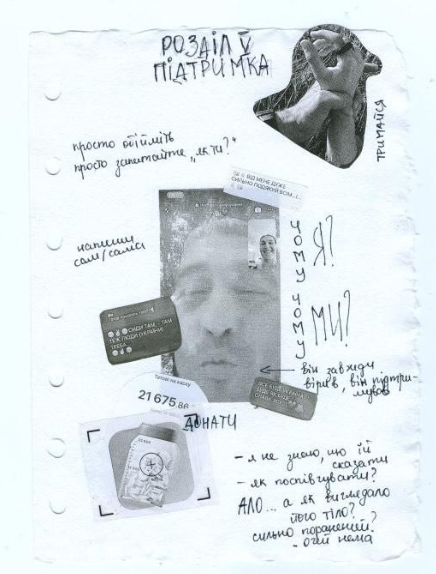 РОЗДІЛ V
ПІДТРИМКА
ТРИМАЙСЯ
просто обійміть
просто запитайте „як ти?"
ВІД МЕНЕ ДУЖЕ
СИЛЬНО
ВСІМ
напиши
сам/сама
ЧОМУ Я?
ЧОМУ МИ?
він завжди
вірив, він підтри-
мував
ТАМ
ЛЮДИ
21 675.88
ДОНАТИ
- я не знаю, що їй
сказати
- як поспівчувати?
АЛО... а як виглядало
його тіло?
сильно поранений?
- очей нема